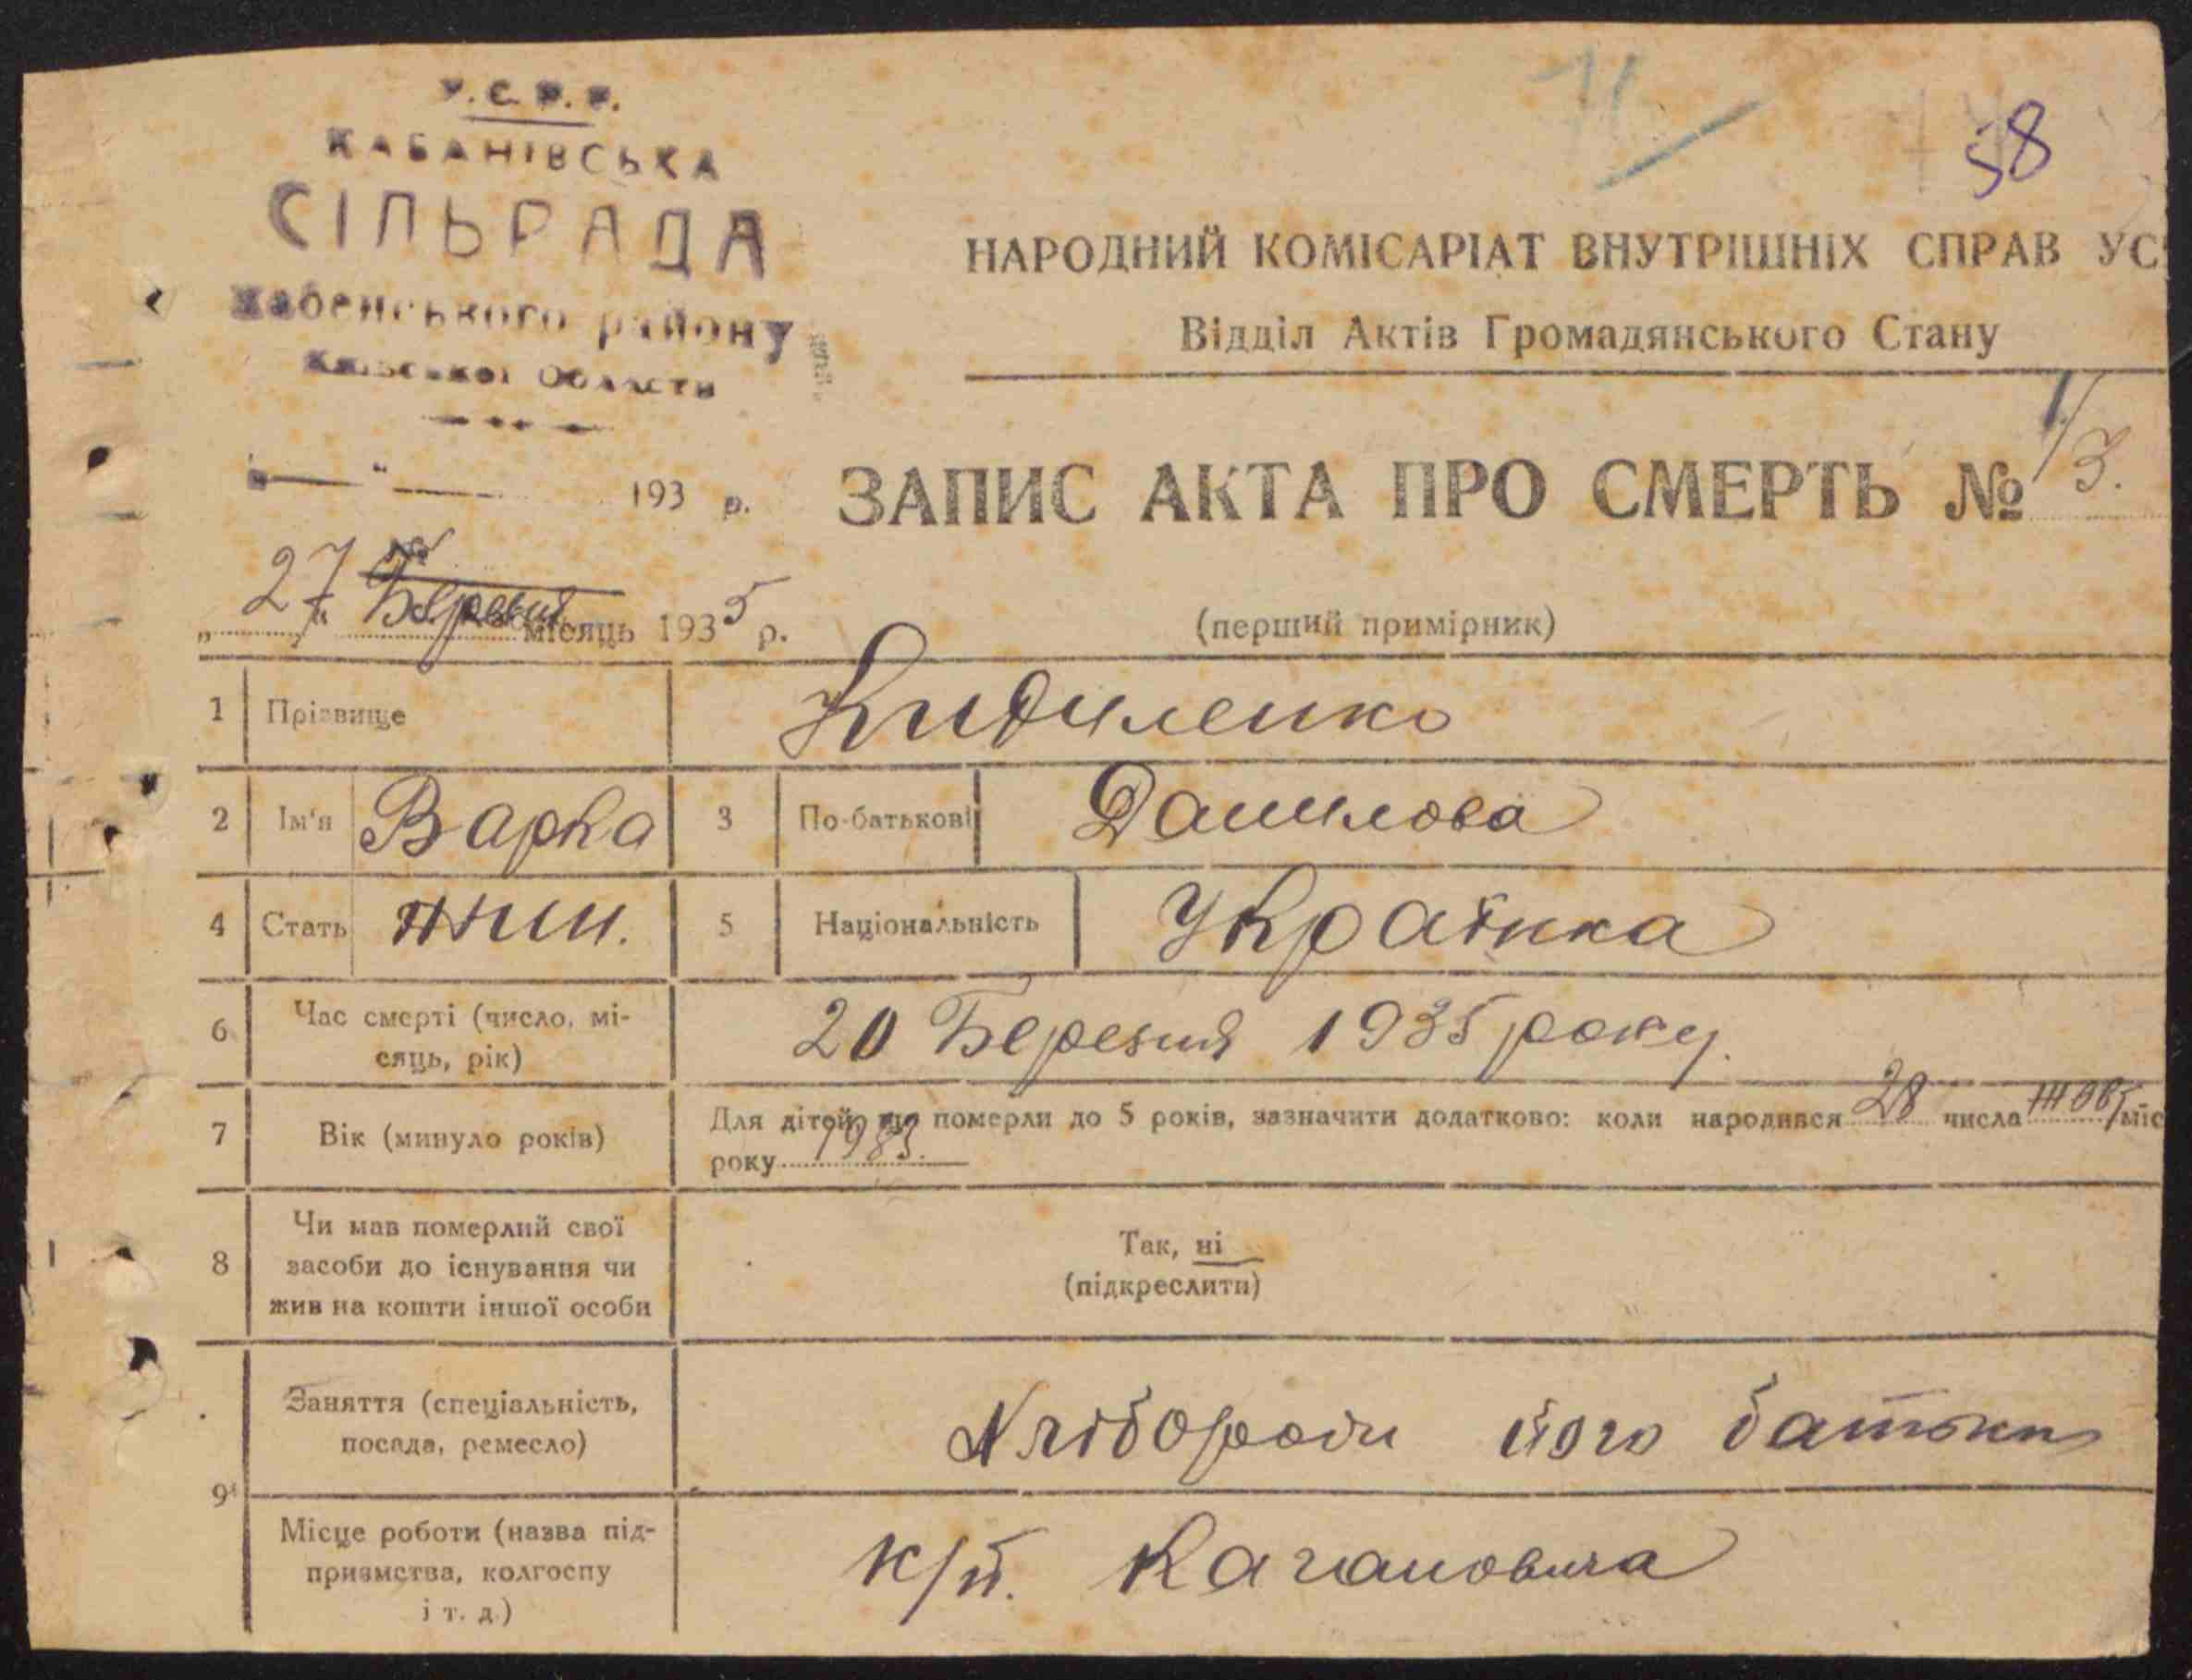 У.С.Р.Р.
КАБАНІВСЬКА
СІЛЬРАДА
Хабенського району
Київської Области
58
НАРОДНИЙ КОМІСАРІАТ ВНУТРІШНІХ СПРАВ УС
Відділ Актів Громадянського Стану
193 р.
ЗАПИС АКТА ПРО СМЕРТЬ № 3.
„27“ Березня місяць 1935 р.
(перший примірник)
1 Прізвище Кидиленко
2 Ім'я Варка 3 По-батькові Данилова
4 Стать жін. 5 Національність Українка
6 Час смерті (число, мі-
сяць, рік) 20 Березня 1935 року.
7 Вік (минуло років) Для дітей, що померли до 5 років, зазначити додатково: коли народився 28 числа жовт міс
року 1933.
8 Чи мав померлий свої
засоби до існування чи
жив на кошти іншої особи
Так, ні
(підкреслити)
9 Заняття (спеціальність,
посада, ремесло) Хлібороби його батьки
Місце роботи (назва під-
приємства, колгоспу
і т. д.) к/п. Кагановича